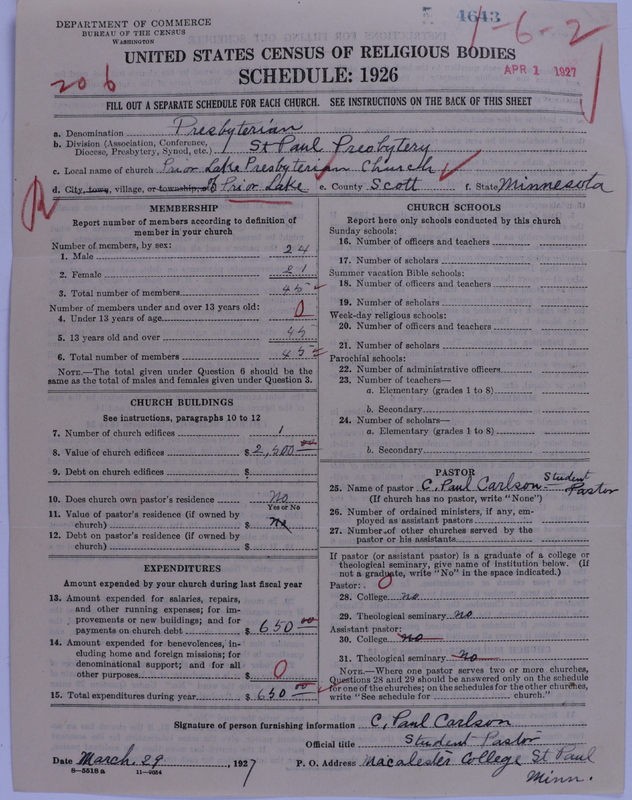 DEPARTMENT OF COMMERCE
BUREAU OF THE CENSUS
WASHINGTON
4643
1-6-2
UNITED STATES CENSUS OF RELIGIOUS BODIES
SCHEDULE: 1926
APR 1 1927
206
FILL OUT A SEPARATE SCHEDULE FOR EACH CHURCH. SEE INSTRUCTIONS ON THE BACK OF THIS SHEET
a. Denomination Presbyterian
b. Division (Association, Conference, Diocese, Presbytery, Synod, etc.) St Paul Presbytery
c. Local name of church Prior Lake Presbyterian Church
d. City, town, village, or township, of Prior Lake e. County Scott f. State Minnesota
MEMBERSHIP
Report number of members according to definition of
member in your church
Number of members, by sex:
1. Male 24
2. Female 21
3. Total number of members 45
Number of members under and over 13 years old:
4. Under 13 years of age 0
5. 13 years old and over 45
6. Total number of members 45
NOTE.—The total given under Question 6 should be
the same as the total of males and females given under Question 3.
CHURCH BUILDINGS
See instructions, paragraphs 10 to 12
7. Number of church edifices 1
8. Value of church edifices $ 2,500 00
9. Debt on church edifices $
10. Does church own pastor's residence No
Yes or No
11. Value of pastor's residence (if owned by
church) $ no
12. Debt on pastor's residence (if owned by
church) $
EXPENDITURES
Amount expended by your church during last fiscal year
13. Amount expended for salaries, repairs,
and other running expenses; for im-
provements or new buildings; and for
payments on church debt $ 650 00
14. Amount expended for benevolences, in-
cluding home and foreign missions; for
denominational support; and for all
other purposes $ 0
15. Total expenditures during year $ 650 00
CHURCH SCHOOLS
Report here only schools conducted by this church
Sunday schools:
16. Number of officers and teachers
17. Number of scholars
Summer vacation Bible schools:
18. Number of officers and teachers
19. Number of scholars
Week-day religious schools:
20. Number of officers and teachers
21. Number of scholars
Parochial schools:
22. Number of administrative officers
23. Number of teachers—
a. Elementary (grades 1 to 8)
b. Secondary
24. Number of scholars—
a. Elementary (grades 1 to 8)
b. Secondary
PASTOR
25. Name of pastor C. Paul Carlson - Student Pastor
(If church has no pastor, write "None")
26. Number of ordained ministers, if any, em-
ployed as assistant pastors
27. Number of other churches served by the
pastor or his assistants
If pastor (or assistant pastor) is a graduate of a college or
theological seminary, give name of institution below. (If
not a graduate, write "No" in the space indicated.)
Pastor: 0
28. College no
29. Theological seminary no
Assistant pastor:
30. College no
31. Theological seminary no
NOTE.—Where one pastor serves two or more churches,
Questions 28 and 29 should be answered only on the schedule
for one of the churches; on the schedules for the other churches,
write "See schedule for church."
Signature of person furnishing information C. Paul Carlson
Official title Student Pastor
Date March 29, 1927 P. O. Address Macalester College St Paul
Minn.
8—5518 a 11—9664